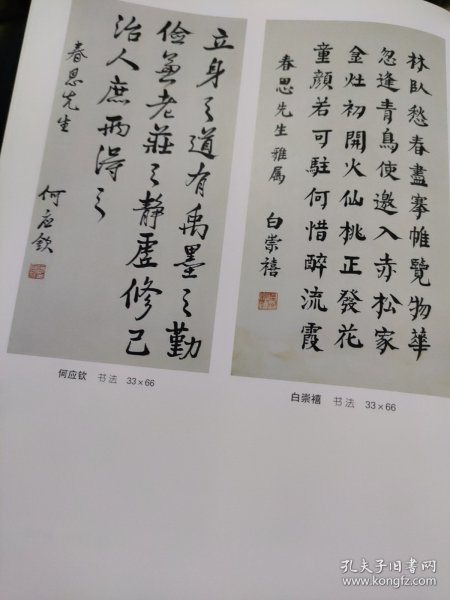 立身之道有禹墨之勤
儉兼老莊之靜虛修己
治人庶两得之
春思先生
何应欽
何应钦 书法 33×66
林臥愁春盡搴帷覽物華
忽逢青鳥使邀入赤松家
金灶初開火仙桃正發花
童顏若可駐何惜醉流霞
春思先生雅属
白崇禧
白崇禧 书法 33×66
孔夫子旧书网
www.kongfz.com